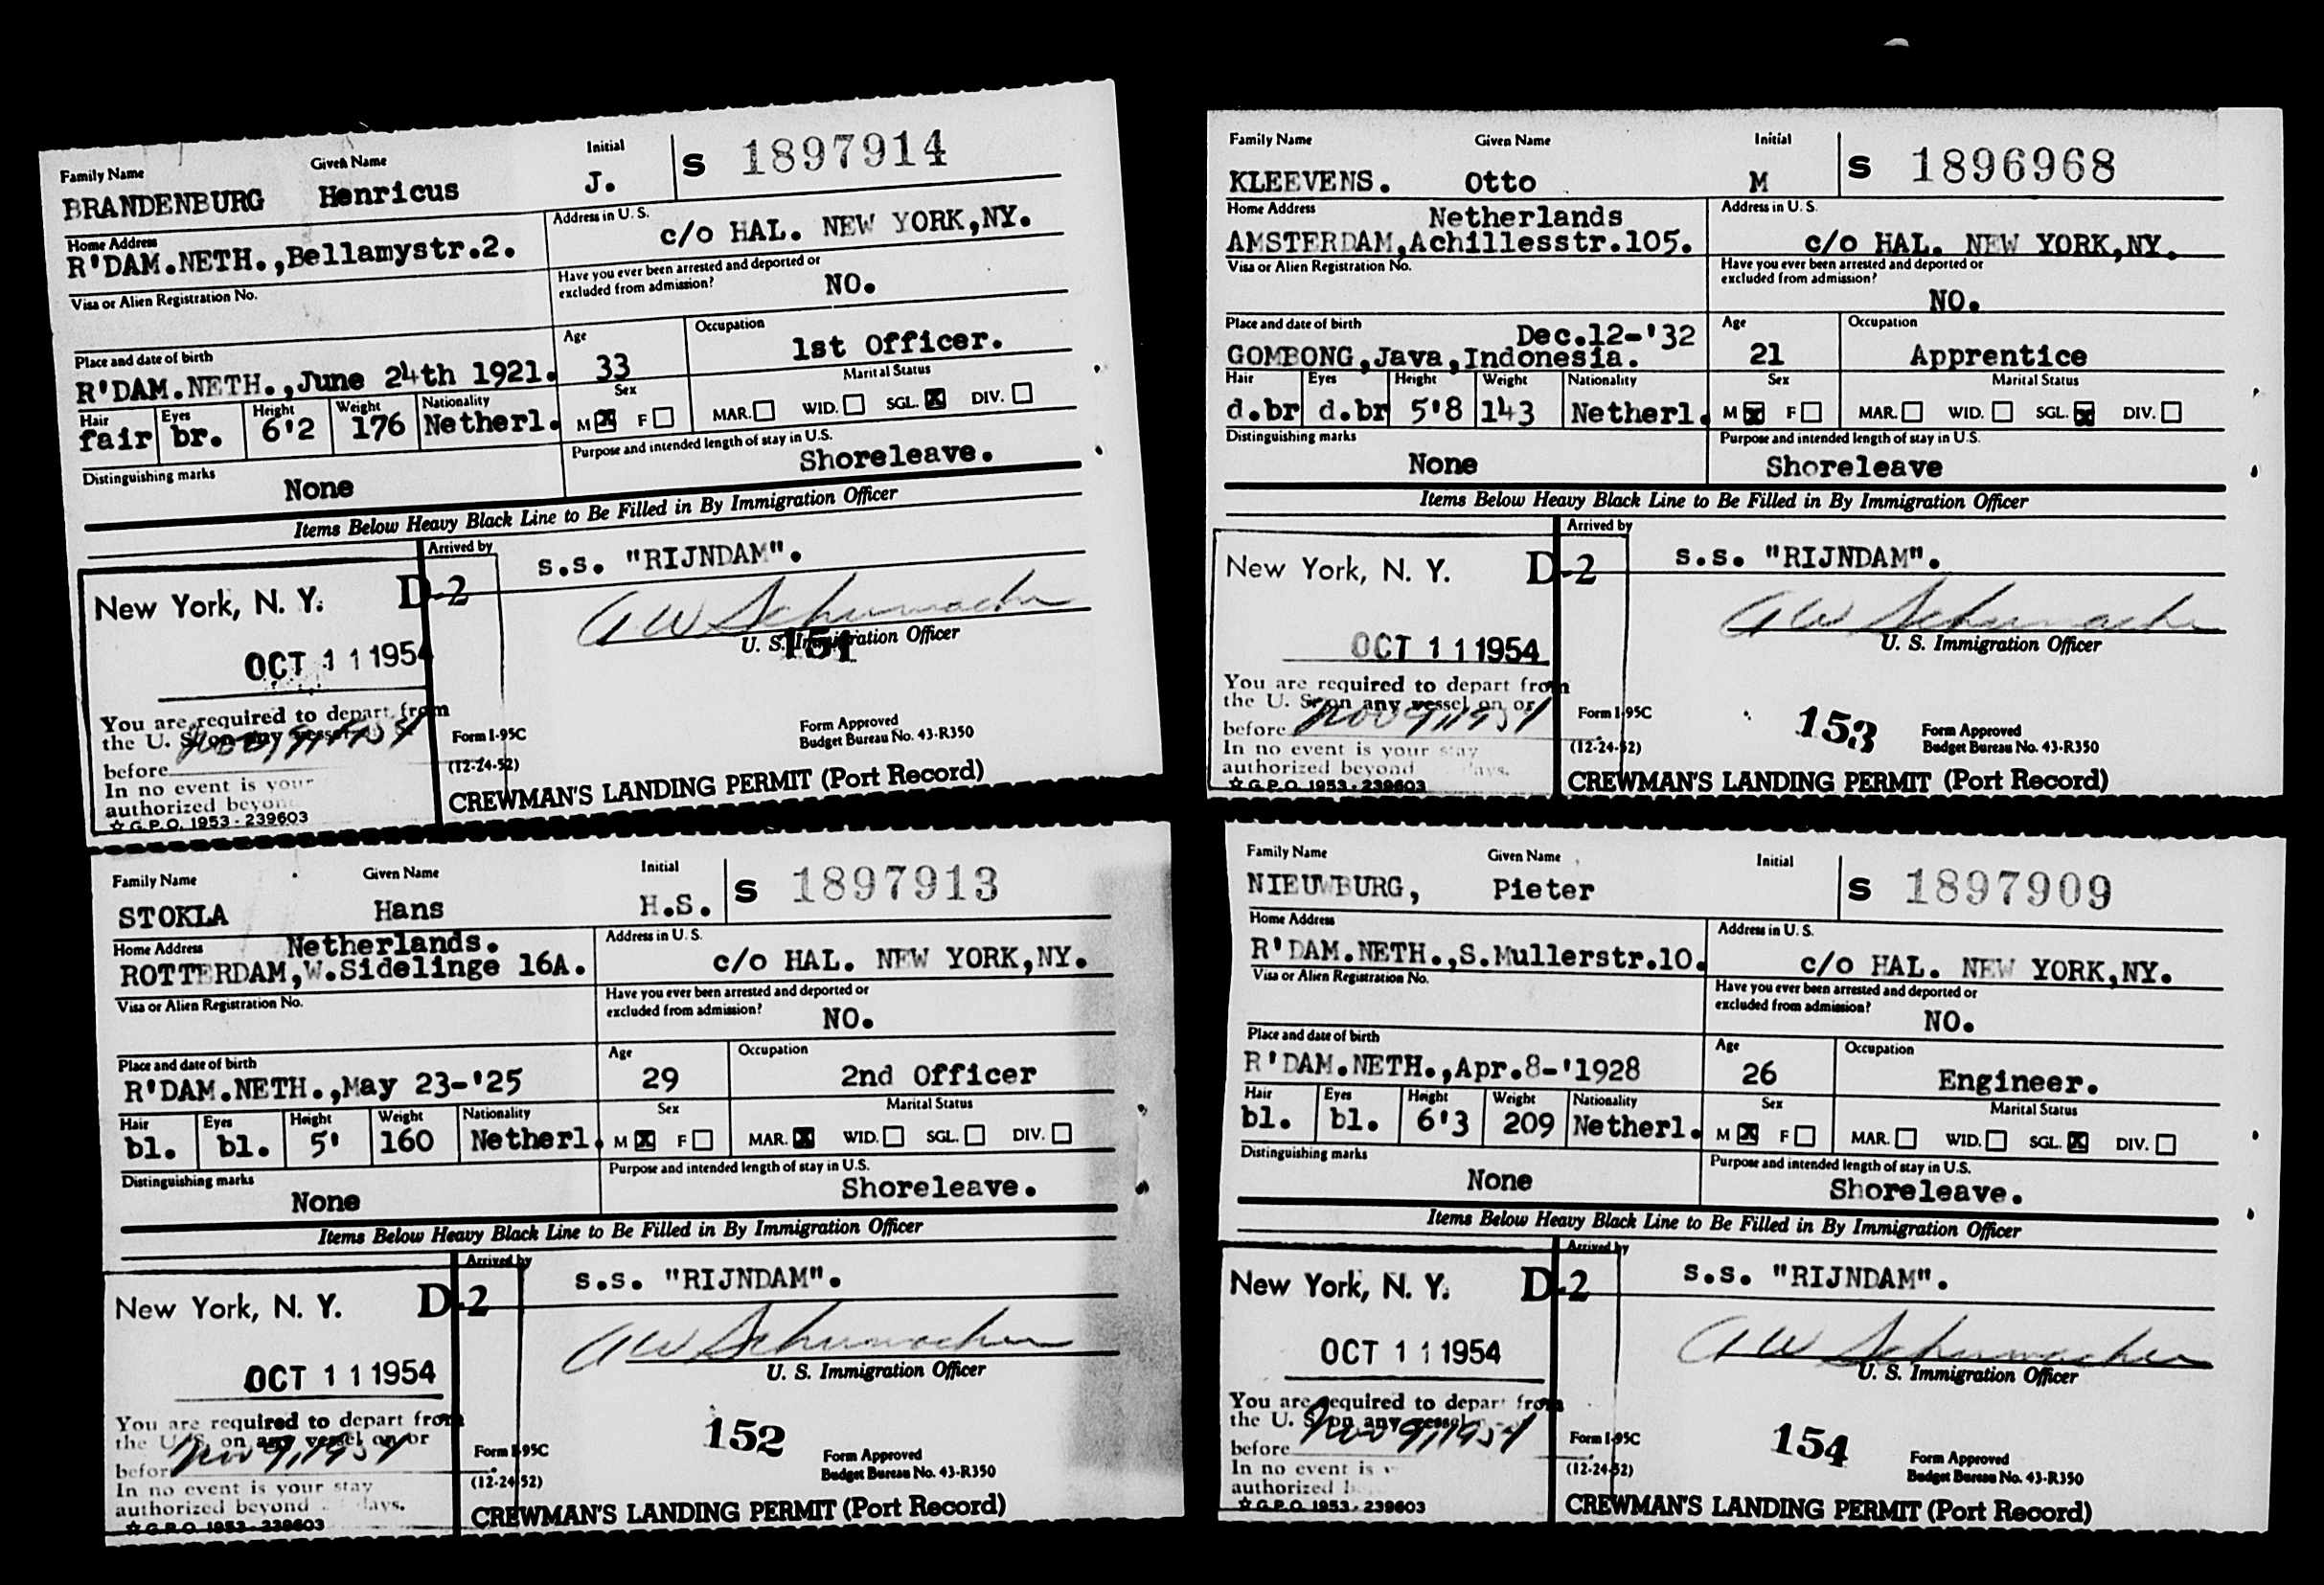 Family Name Given Name Initial
BRANDENBURG Henricus J. S 1897914
Home Address Address in U. S.
R'DAM.NETH.,Bellamystr.2. c/o HAL. NEW YORK,NY.
Visa or Alien Registration No. Have you ever been arrested and deported or
excluded from admission? NO.
Place and date of birth Age Occupation
R'DAM.NETH.,June 24th 1921. 33 1st Officer.
Hair Eyes Height Weight Nationality Sex Marital Status
fair br. 6'2 176 Netherl. M X F MAR. WID. SGL. X DIV.
Distinguishing marks Purpose and intended length of stay in U.S.
None Shoreleave.
Items Below Heavy Black Line to Be Filled in By Immigration Officer
Arrived by
New York, N. Y. D-2 s.s. "RIJNDAM".
A W Schumacher
OCT 11 1954 U. S. Immigration Officer
151
You are required to depart from
the U. S. on any vessel
Nov 9, 1954
before
In no event is your
authorized beyond
☆ G.P.O. 1953 - 239603
Form I-95C Form Approved
(12-24-52) Budget Bureau No. 43-R350
CREWMAN'S LANDING PERMIT (Port Record)
Family Name Given Name Initial
KLEEVENS. Otto M S 1896968
Home Address Netherlands Address in U. S.
AMSTERDAM,Achillesstr.105. c/o HAL. NEW YORK,NY.
Visa or Alien Registration No. Have you ever been arrested and deported or
excluded from admission?
NO.
Place and date of birth Dec.12-'32 Age Occupation
GOMBONG,Java,Indonesia. 21 Apprentice
Hair Eyes Height Weight Nationality Sex Marital Status
d.br d.br 5'8 143 Netherl. M X F MAR. WID. SGL. X DIV.
Distinguishing marks Purpose and intended length of stay in U.S.
None Shoreleave
Items Below Heavy Black Line to Be Filled in By Immigration Officer
Arrived by
New York, N. Y. D-2 s.s. "RIJNDAM".
A W Schumacher
OCT 11 1954 U. S. Immigration Officer
You are required to depart from
the U. S. on any vessel on or
before Nov 9, 1954
In no event is your stay
authorized beyond days.
☆ G.P.O. 1953 - 239603
Form I-95C 153 Form Approved
(12-24-52) Budget Bureau No. 43-R350
CREWMAN'S LANDING PERMIT (Port Record)
Family Name Given Name Initial
STOKLA Hans H.S. S 1897913
Home Address Netherlands. Address in U. S.
ROTTERDAM,W.Sidelinge 16A. c/o HAL. NEW YORK,NY.
Visa or Alien Registration No. Have you ever been arrested and deported or
excluded from admission? NO.
Place and date of birth Age Occupation
R'DAM.NETH.,May 23-'25 29 2nd Officer
Hair Eyes Height Weight Nationality Sex Marital Status
bl. bl. 5' 160 Netherl. M X F MAR. X WID. SGL. DIV.
Distinguishing marks Purpose and intended length of stay in U.S.
None Shoreleave.
Items Below Heavy Black Line to Be Filled in By Immigration Officer
Arrived by
New York, N. Y. D-2 s.s. "RIJNDAM".
A W Schumacher
OCT 11 1954 U. S. Immigration Officer
You are required to depart from
the U. S. on any vessel on or
before Nov 9, 1954
In no event is your stay
authorized beyond days.
☆ G.P.O. 1953 - 239603
152
Form I-95C Form Approved
(12-24-52) Budget Bureau No. 43-R350
CREWMAN'S LANDING PERMIT (Port Record)
Family Name Given Name Initial
NIEUWBURG, Pieter S 1897909
Home Address Address in U. S.
R'DAM.NETH.,S.Mullerstr.10. c/o HAL. NEW YORK,NY.
Visa or Alien Registration No. Have you ever been arrested and deported or
excluded from admission? NO.
Place and date of birth Age Occupation
R'DAM.NETH.,Apr.8-'1928 26 Engineer.
Hair Eyes Height Weight Nationality Sex Marital Status
bl. bl. 6'3 209 Netherl. M X F MAR. WID. SGL. X DIV.
Distinguishing marks Purpose and intended length of stay in U.S.
None Shoreleave.
Items Below Heavy Black Line to Be Filled in By Immigration Officer
Arrived by
New York, N. Y. D-2 s.s. "RIJNDAM".
A W Schumacher
OCT 11 1954 U. S. Immigration Officer
You are required to depart from
the U. S. on any vessel
before Nov 9, 1954
In no event is
authorized
☆ G.P.O. 1953 - 239603
Form I-95C 154 Form Approved
(12-24-52) Budget Bureau No. 43-R350
CREWMAN'S LANDING PERMIT (Port Record)